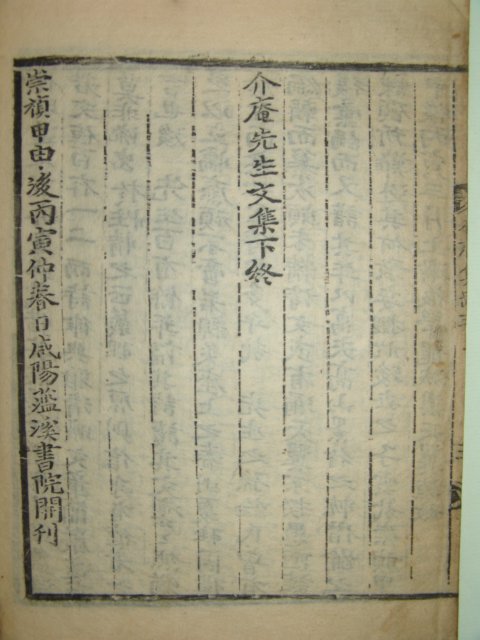 介庵先生文集下終
崇禎甲申後丙寅仲春日咸陽蘫溪書院開刊